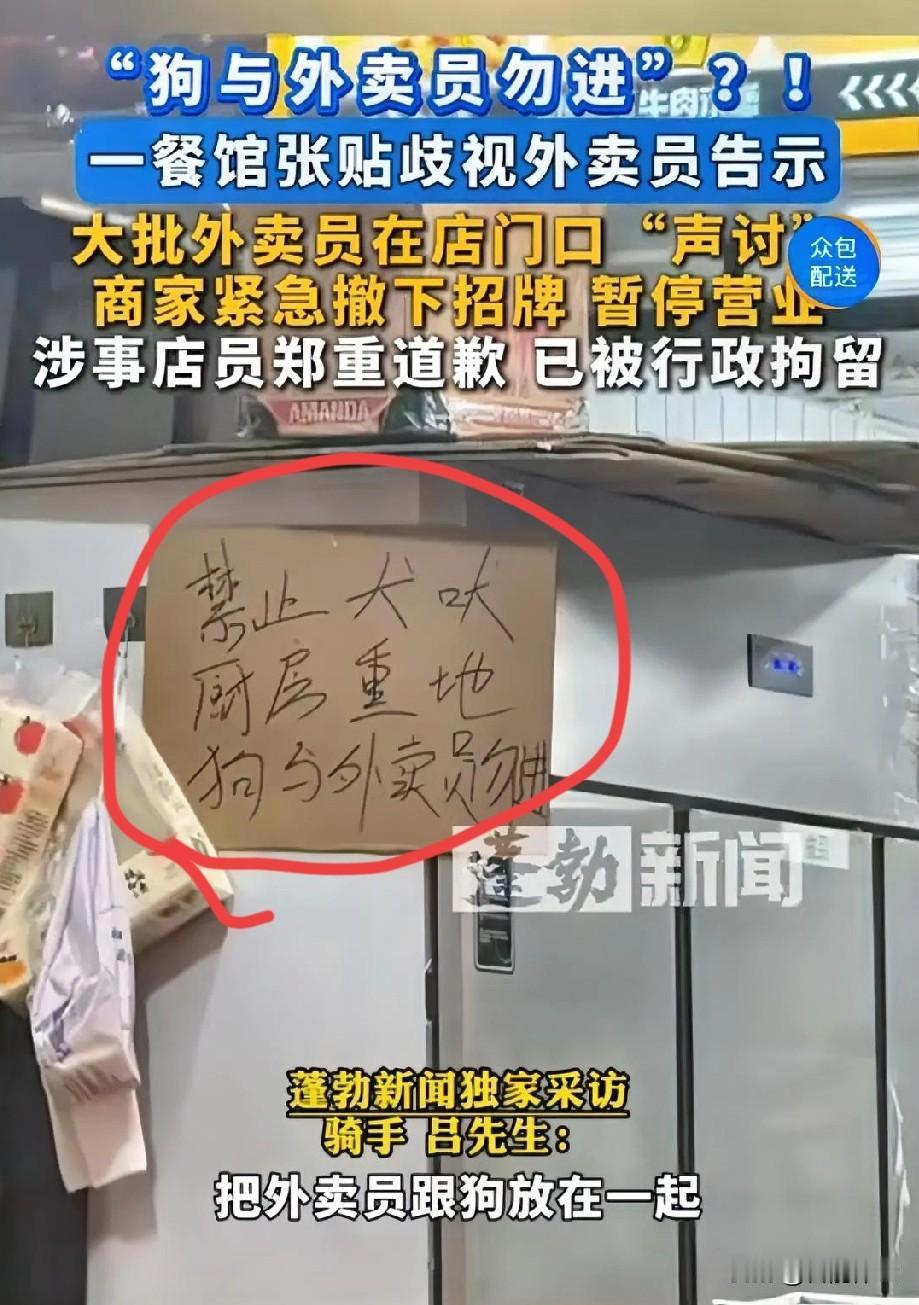 “狗与外卖员勿进”？！
一餐馆张贴歧视外卖员告示
大批外卖员在店门口“声讨”
众包
配送
商家紧急撤下招牌 暂停营业
涉事店员郑重道歉 已被行政拘留
AMANDA
禁止犬吠
厨房重地
狗与外卖员勿进
蓬勃新闻
蓬勃新闻独家采访
骑手 吕先生：
把外卖员跟狗放在一起